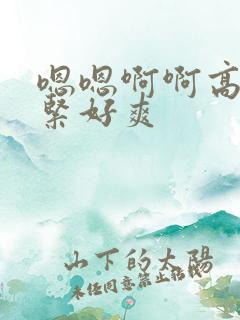 嗯嗯啊啊高
紧好爽
山下的太陽
未经同意禁止转载